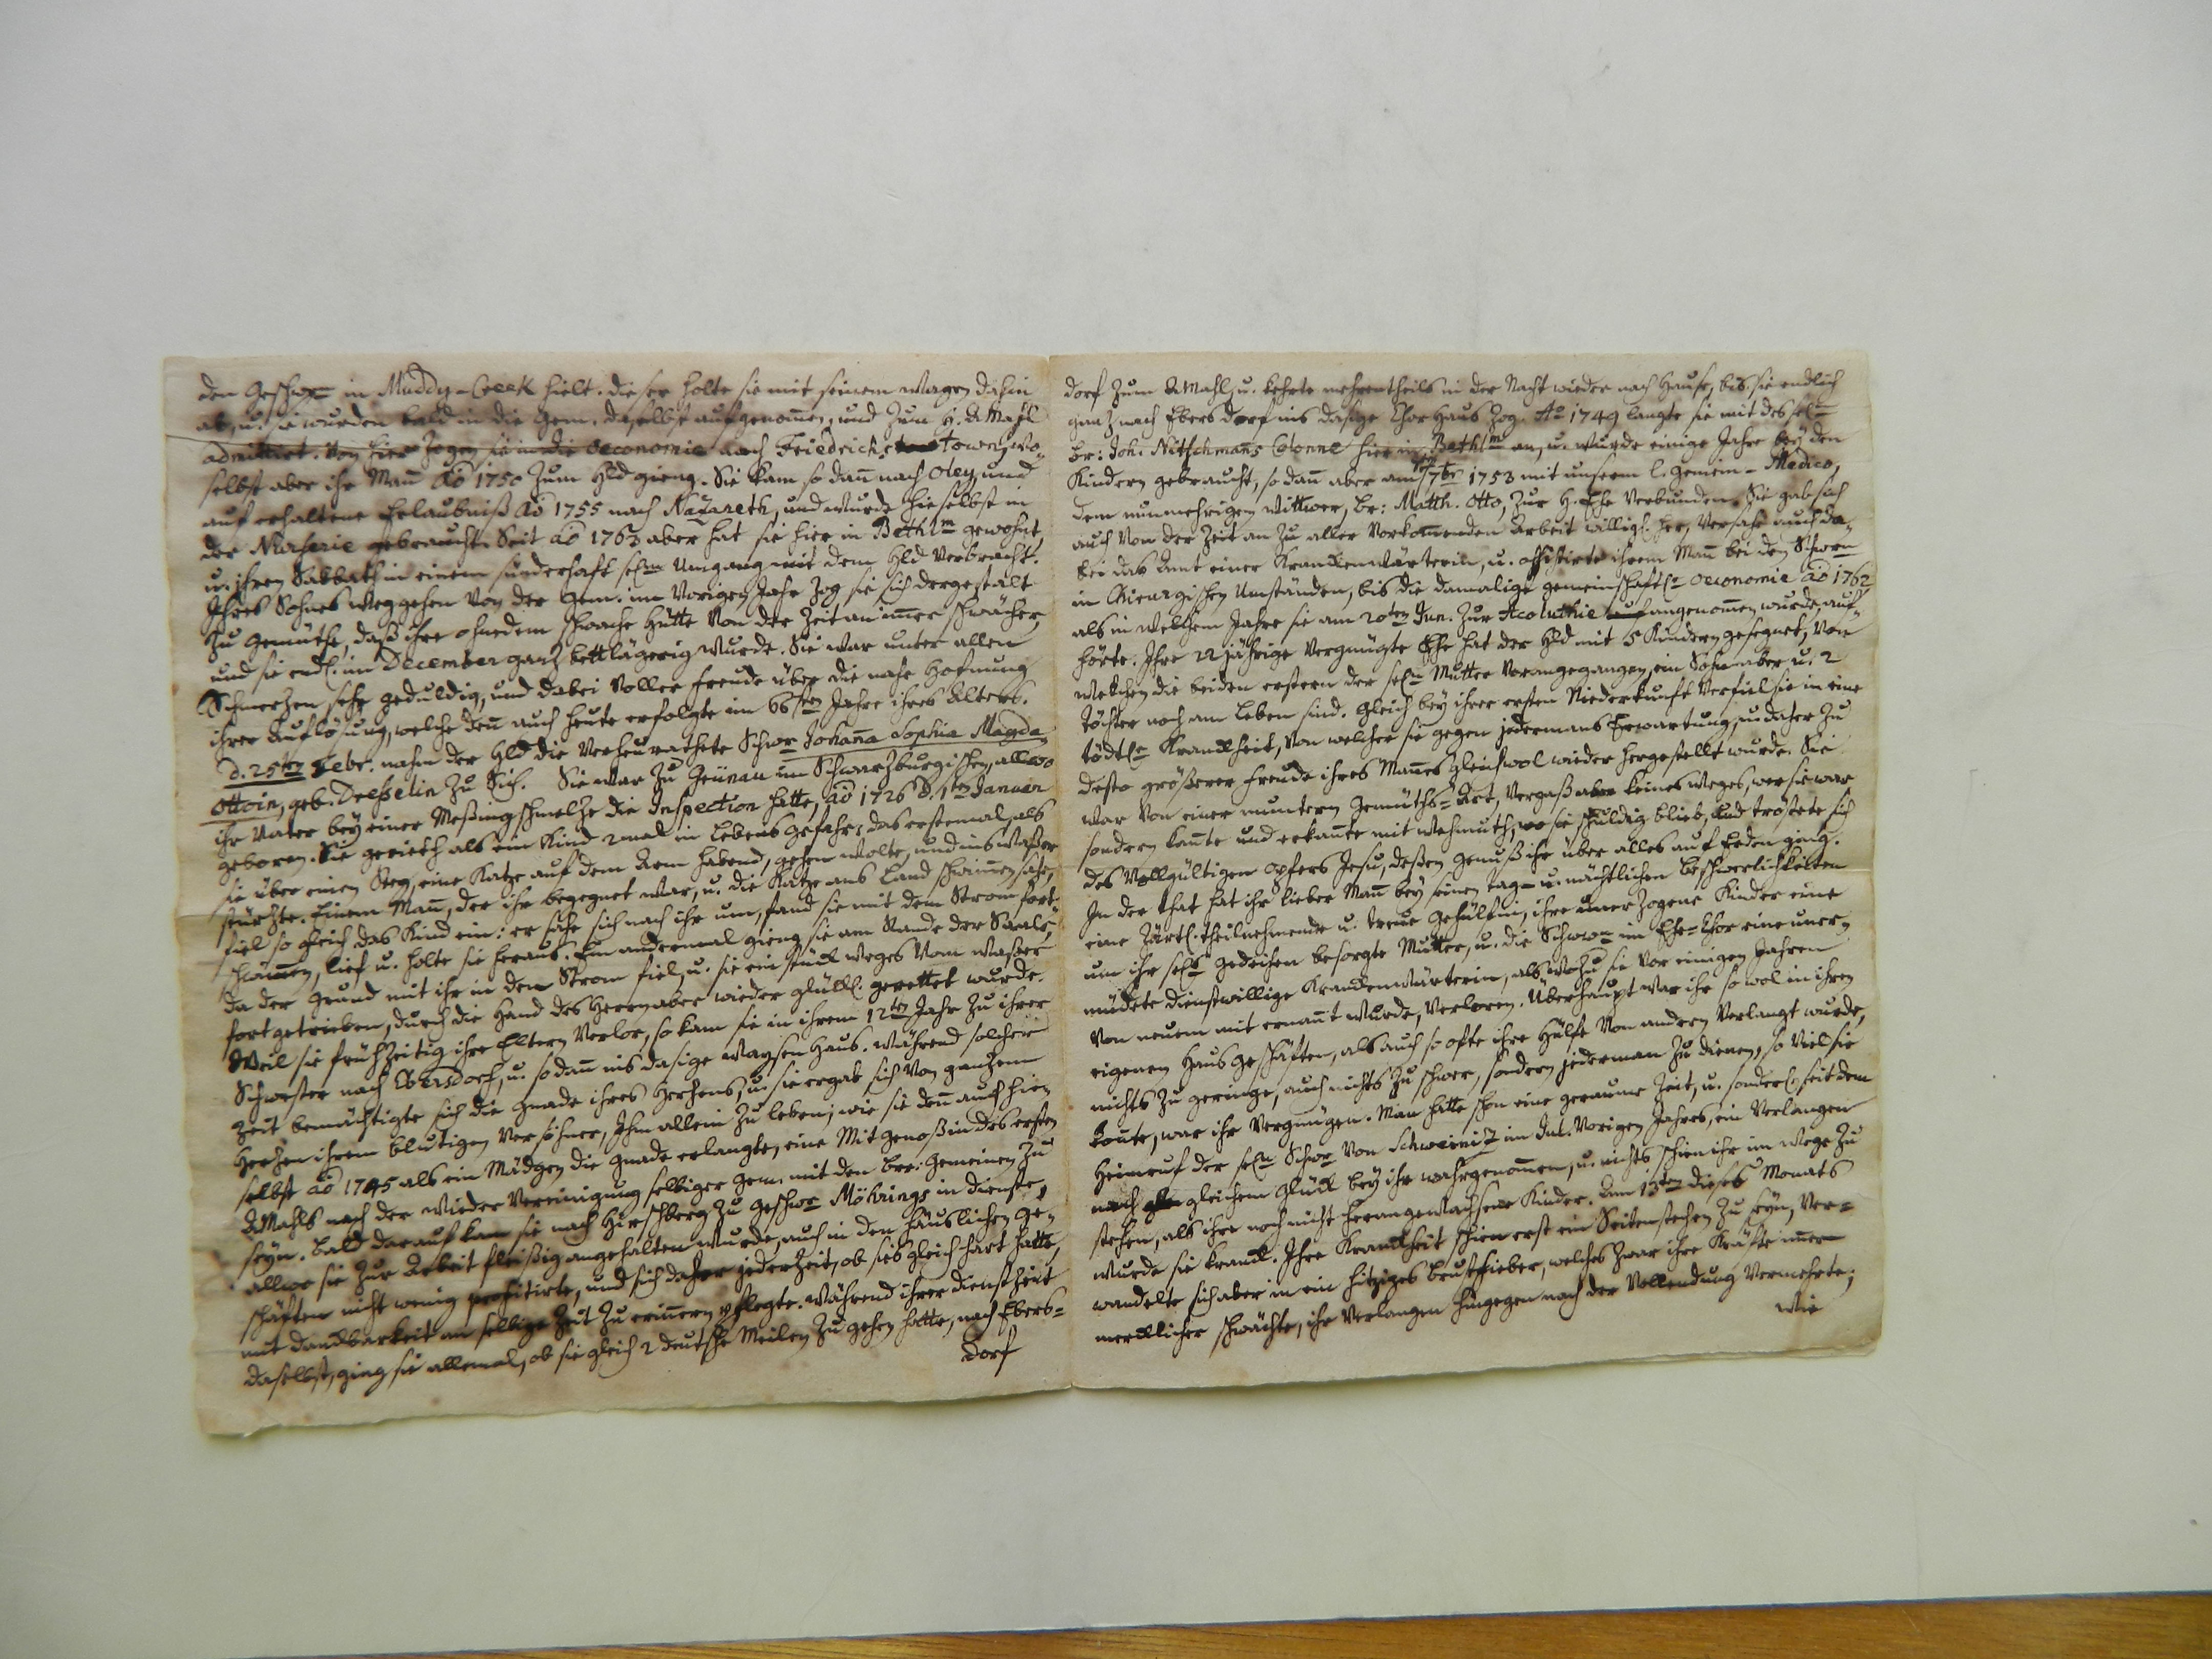 den Geschwn in Muddy-Creek hielt. dieser holte sie mit seinem Wagen dahin
ab, u. sie wurden bald in die Gem. daselbst aufgenom̄en, und zum H. A. Mahl
admittirt. Von hier zogen sie in die Oeconomie nach Friedrichstown, wo-
selbst aber ihr Man̄ ao 1750 zum Hld gieng. Sie kam so dan̄ nach Oley, und
auf erhaltene Erlaubniß ao 1755 nach Nazareth, und wurde hieselbst in
der Nurserie gebraucht. Seit ao 1763 aber hat sie hier in Bethlm gewohnt,
u. ihren Sabbath in einem sünderhaft seln Umgang mit dem Hld verbracht.
Ihres Sohnes Weggehen von der Gem. im vorigen Jahr zog sie sich dergestalt
zu Gemüthe, daß ihre ohnedem schwache Hütte von der Zeit an im̄er schwächer,
und sie endl. im December ganz bettlägerig wurde. Sie war unter allen
Schmerzen sehr geduldig, und dabei voller Freude über die nahe Hofnung
ihrer Auflösung, welche den̄ auch heute erfolgte im 66sten Jahre ihres Alters.
D. 25ten Febr. nahm der Hld die verheurathete Schwr Johan̄a Sophia Magda
Ottoin, geb. Dresslerin zu Sich. Sie war zu Grünau im Schwarzburgischen, allwo
ihr Vater bey einer Meßingschmelze die Inspection hatte, ao 1726 d. 1ten Januar
geboren. Sie gerieth als ein Kind 2mal in Lebensgefahr; das erstemal, als
sie über einen Steg, eine Katze auf dem Arm habend, gehen wolte, und ins Waßer
stürzte. Einem Man̄, der ihr begegnet war, u. die Katze ans Land schwim̄en sahe,
fiel so gleich das Kind ein: er sahe sich nach ihr um, fand sie mit dem Strom fort-
schwim̄en, lief u. holte sie heraus. Ein andermal gieng sie am Rande der Saale,
da der Grund mit ihr in den Strom fiel, u. sie ein stück Weges vom Waßer
fortgetrieben, durch die Hand des Herrn aber wieder glückl. gerettet wurde.
Weil sie frühzeitig ihre Eltern verlor, so kam sie in ihrem 12ten Jahr zu ihrer
Schwester nach Ebersdorf, u. so dan̄ ins dasige Waysenhaus. Während solcher
Zeit bemächtigte sich die Gnade ihres Herzens, u. sie ergab sich von ganzem
Herzen ihrem blutigen Versöhner, Ihm allein zu leben; wie sie den̄ auch hie-
selbst ao 1745 als ein Mädgen die Gnade erlangte, eine Mitgenoßin des ersten
A. Mahls nach der Wieder Vereinigung selbiger Gem. mit den Brr: Gemeinen zu
seyn. Bald darauf kam sie nach Hirschberg zu Geschwr Möhrings in Dienste,
allwo sie zur Arbeit fleißig angehalten wurde, auch in den häuslichen Ge-
schäften nicht wenig profitirte, und sich daher jederzeit, ob sies gleich hart hatte,
mit Danckbarkeit an selbige Zeit zu erin̄ern pflegte. Während ihrer Dienstzeit
daselbst, ging sie allemal, ob sie gleich 2 deutsche Meilen zu gehen hatte, nach Ebers-
dorf
dorf zum A. Mahl, u. kehrte mehrentheils in der Nacht wieder nach Hause, bis sie endlich
ganz nach Ebersdorf ins dasige Chor Haus zog. Ao 1749 langte sie mit des seln
Br: Joh. Nitschmans Colonne hier in Bethlm an, u. wurde einige Jahre bey den
Kindern gebraucht, so dan̄ aber am 7br 1753 mit unserm l. Gemein-Medico,
dem nunmehrigen Wittwer, Br: Matth. Otto, zur H. Ehe verbunden. Sie gab sich
auch von der Zeit an zu aller vorkom̄enden Arbeit willigl. her, versahe auch da-
bei das Amt einer Kranckenwärterin, u. assistirte ihrem Man̄ bei den Schwrn
in Chirurgischen Umständen, bis die damalige gemeinschaftle Oeconomie ao 1762,
als in welchem Jahre sie am 20ten Jun. zur Acoluthie angenom̄en wurde, auf-
hörte. Ihre 22 jährige vergnügte Ehe hat der Hld mit 5 Kindern gesegnet, von
welchen die beiden erstern der seln Mutter vorangegangen, ein Sohn aber u. 2
Töchter noch am Leben sind. Gleich bey ihrer ersten Niederkunft verfiel sie in eine
tödtle Kranckheit, von welcher sie gegen jedermans Erwartung, u. daher zu
desto größerer Freude ihres Man̄es gleichwol wieder hergestellt wurde. Sie
war von einer muntern Gemüths-Art, vergaß aber keines weges, wer sie war
sondern kan̄te und erkan̄te mit Wehmuth, wo sie schuldig blieb, und tröstete sich
des vollgültigen Opfers Jesu, deßen Genuß ihr über alles auf Erden ging.
In der that hat ihr lieber Man̄ bey seinen tag- u. nächtlichen Beschwerlichkeiten
eine zärtl. theilnehmende u. treue Gehülfin, ihre unerzogene Kinder eine
um ihr sels Gedeihen besorgte Mutter, u. die Schwrn im Ehe-Chor eine uner-
müdete dienstwillige Kranckenwärterin, als wozu sie vor einigen Jahren
von neuem mit ernan̄t wurde, verloren. Überhaupt war ihr so wol in ihren
eigenen Hausgeschäften, als auch so ofte ihre Hülfe von andern verlangt wurde,
nichts zu geringe, auch nichts zu schwer, sondern jederman zu dienen, so viel sie
konte, war ihr Vergnügen. Man hatte schon eine geraume Zeit, u. sonderl. seit dem
Heimruf der seln Schwr von Schweinitz im vorigen Jahres, ein Verlangen
nach gleichem Glück bey ihr wahrgenom̄en, u. nichts schien ihr im Wege zu
stehen, als ihre noch nicht herangewachsene Kinder. Am 13ten dieses Monats
wurde sie kranck. Ihre Kranckheit schien erst ein Seitenstechen zu seyn, ver-
wandelte sich aber in ein hitziges Brustfieber, welches zwar ihre Kräfte im̄er
mercklicher schwächte, ihr Verlangen hingegen nach der Vollendung vermehrte;
wie